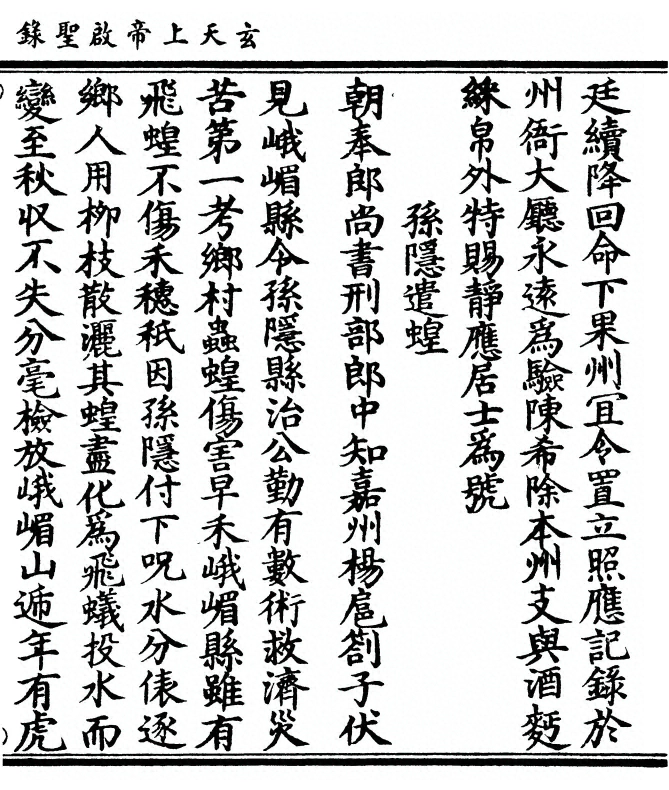 玄天上帝啟聖錄
廷續降回命下果州冝令置立照應記錄於
州衙大廳永遠爲驗陳希除本州支與酒麪
綵帛外特賜靜應居士爲號
孫隱遣蝗
朝奉郎尚書刑部郎中知嘉州楊扈劄子伏
見峨嵋縣令孫隱縣治公勤有數術救濟災
苦第一考鄉村蟲蝗傷害早禾峨嵋縣雖有
飛蝗不傷禾穗秖因孫隱付下呪水分俵逐
鄉人用柳枝散灑其蝗盡化爲飛蟻投水而
變至秋収不失分毫檢放峨嵋山遞年有虎